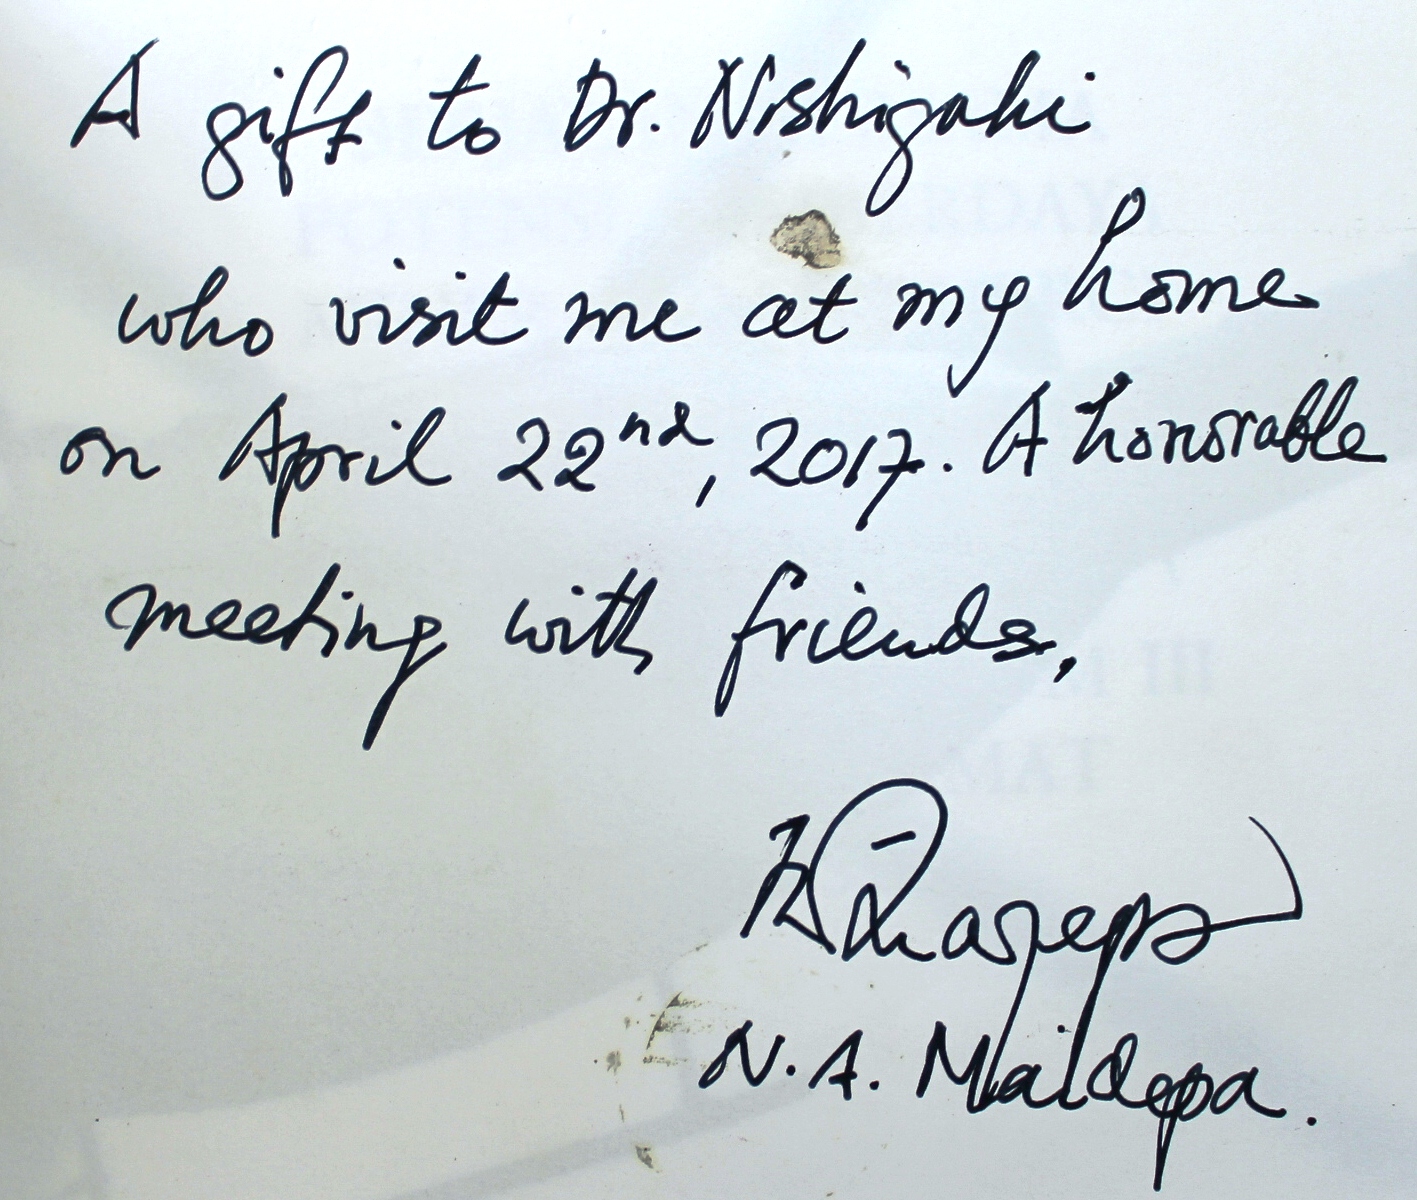 A gift to Dr. Nishizaki
who visit me at my home
on April 22nd, 2017. A honorable
meeting with friends,
N. A. Maidepa.